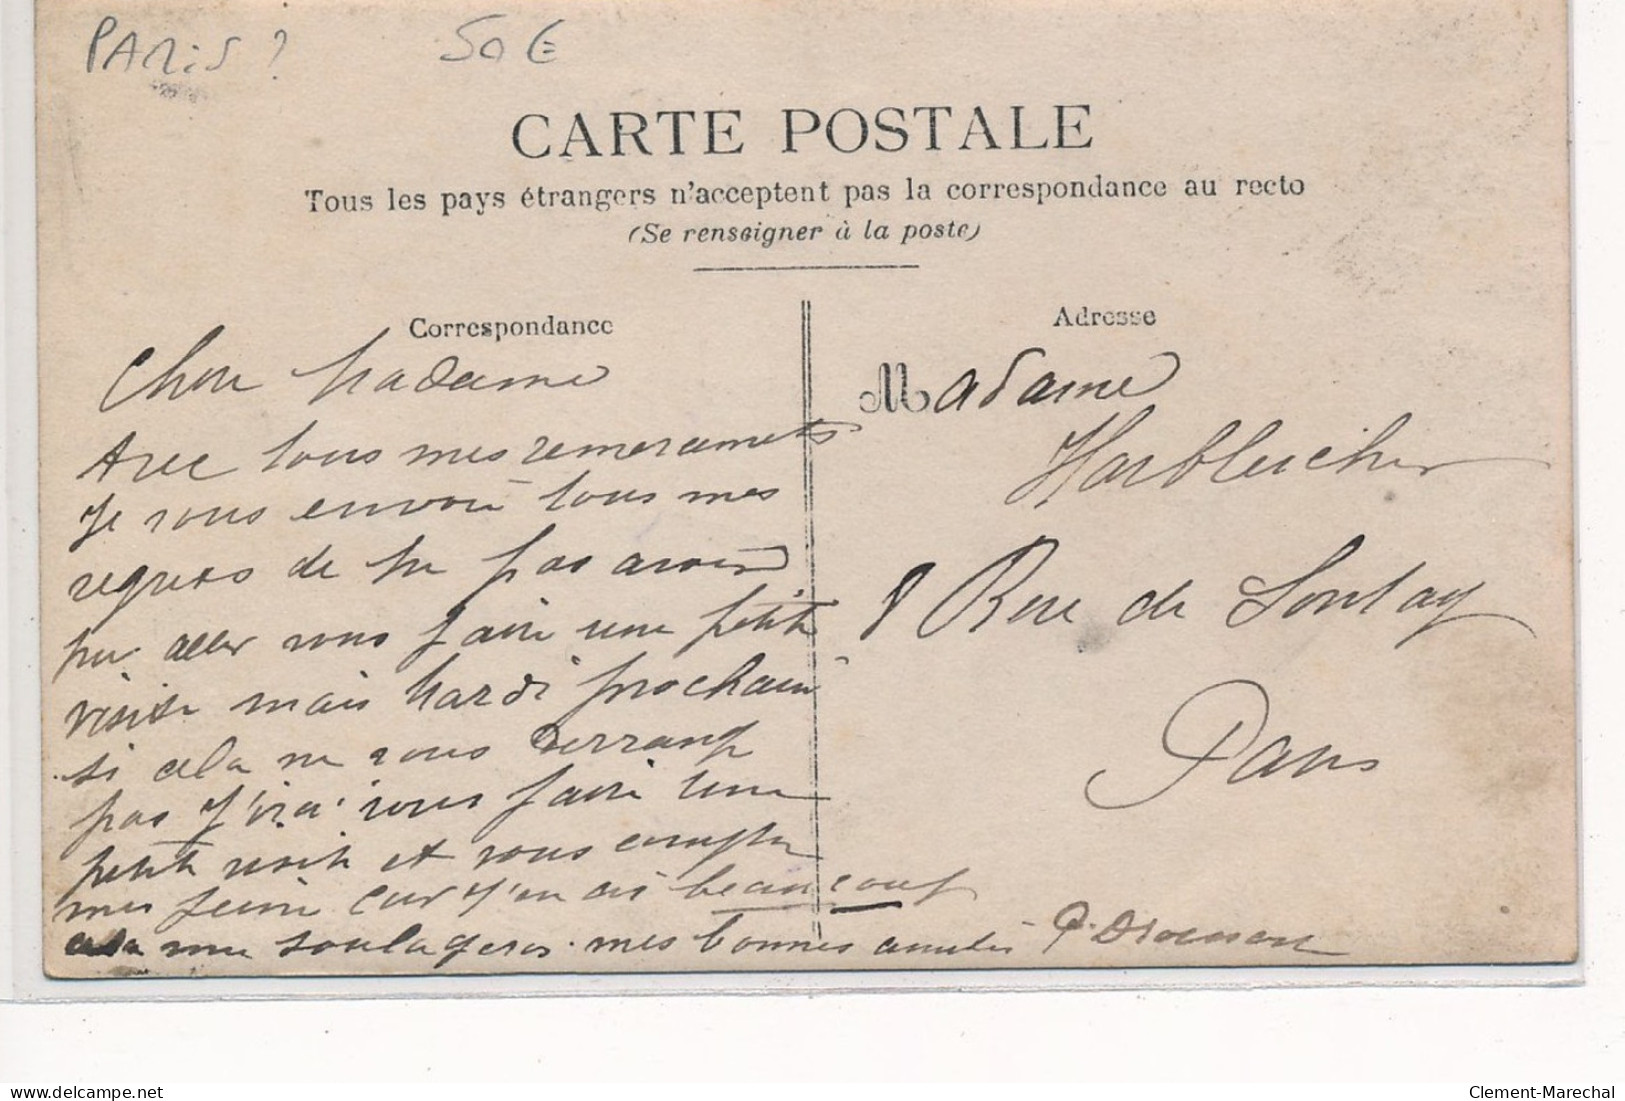 PARIS ? 50 €
CARTE POSTALE
Tous les pays étrangers n'acceptent pas la correspondance au recto
(Se renseigner à la poste)
Correspondance
Adresse
Madame
Avec tous mes
je vous envoie tous mes
regrets de pas avoir
pu aller vous faire une petite
visite mais Mardi prochain
si cela ne vous derrange
pas j'irai vous faire une
petite visite et vous compter
mes peine car j'en ai beaucoup
cela me soulageras. mes bonnes amitiés
Madame
8 Rue de Lontay
Paris
www.delcampe.net
Clement-Marechal